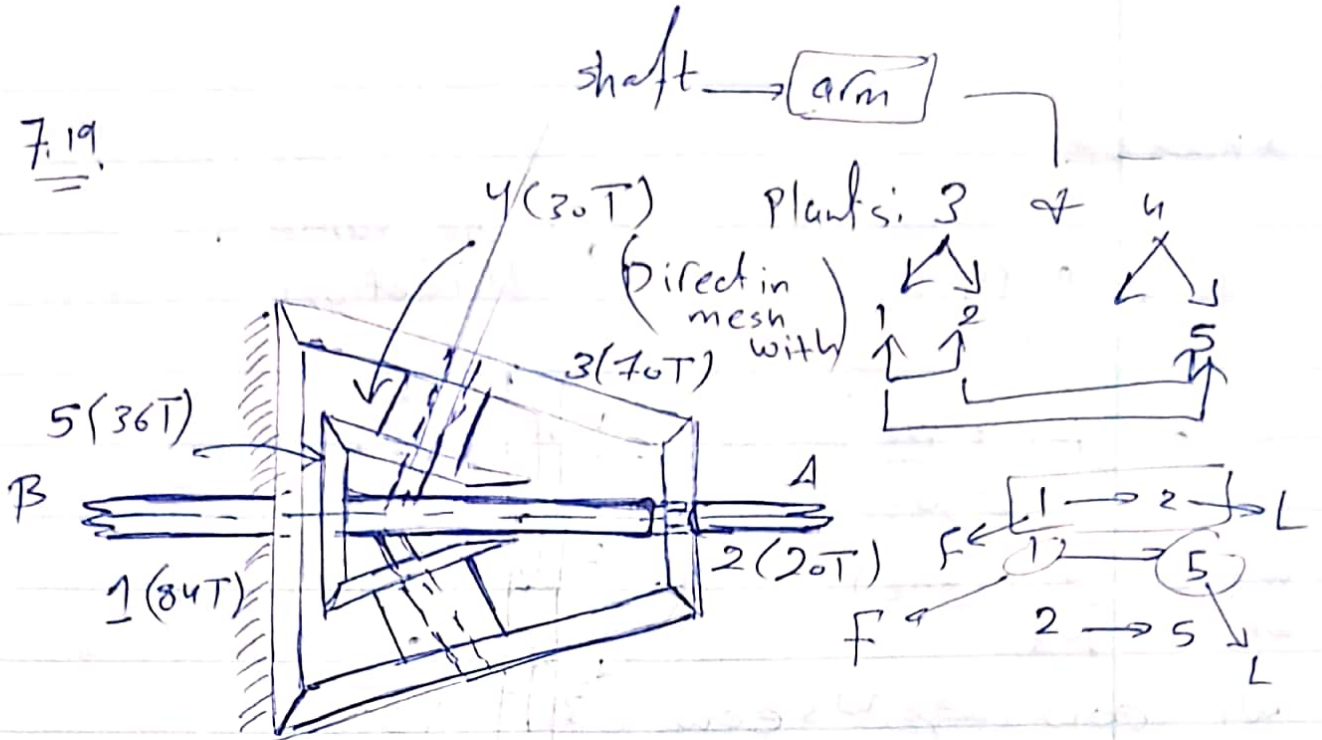 shaft → arm
7.19.
4(30T)
Plants: 3 & 4
(Direct in
mesh
with)
1 2 5
3(70T)
5(36T)
B
A
1 → 2 → L
F
1 → 5
2(20T)
1(84T)
F
2 → 5
L